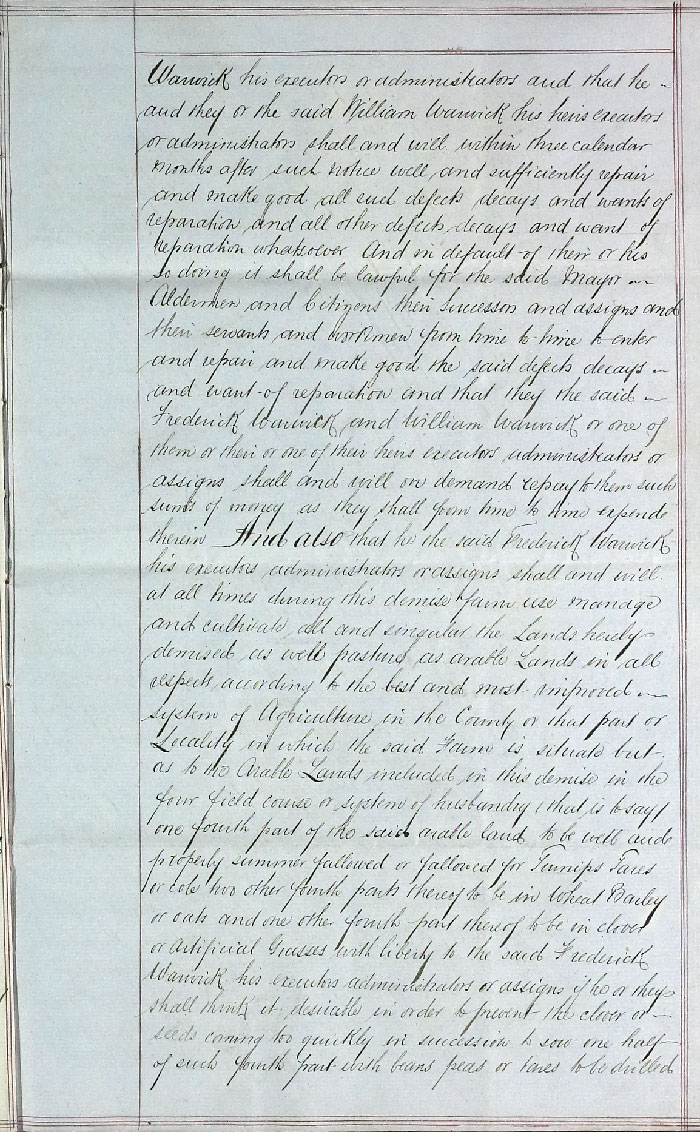 Warwick his executors or administrators and that he -
and they or the said William Warwick his heirs executors
or administrators shall and will within three calendar
months after such notice well and sufficiently repair
and make good all such defects decays and wants of
reparation and all other defects decays and want of
reparation whatsoever And in default of their or his
so doing it shall be lawful for the said Mayor -
Aldermen and Citizens their successors and assigns and
their servants and workmen from time to time to enter
and repair and make good the said defects decays -
and want of reparation and that they the said -
Frederick Warwick and William Warwick or one of
them or their or one of their heirs executors administrators or
assigns shall and will on demand repay to them such
sums of money as they shall from time to time expend
therein And also that he the said Frederick Warwick
his executors administrators or assigns shall and will
at all times during this demise farm use manage
and cultivate all and singular the Lands hereby
demised as well pasture as arable Lands in all
respects according to the best and most improved -
system of Agriculture in the County or that part or
Locality in which the said Farm is situate but
as to the Arable Lands included in this demise in the
four field course or system of husbandry (that is to say)
one fourth part of the said arable land to be well and
properly summer fallowed or fallowed for Turnips Tares
or cole two other fourth parts thereof to be in Wheat Barley
or oats and one other fourth part thereof to be in clover
or Artificial Grasses with liberty to the said Frederick
Warwick his executors administrators or assigns if he or they
shall think it desirable in order to prevent the clover or -
seeds coming too quickly in succession to sow one half
of such fourth part with beans peas or tares to be drilled